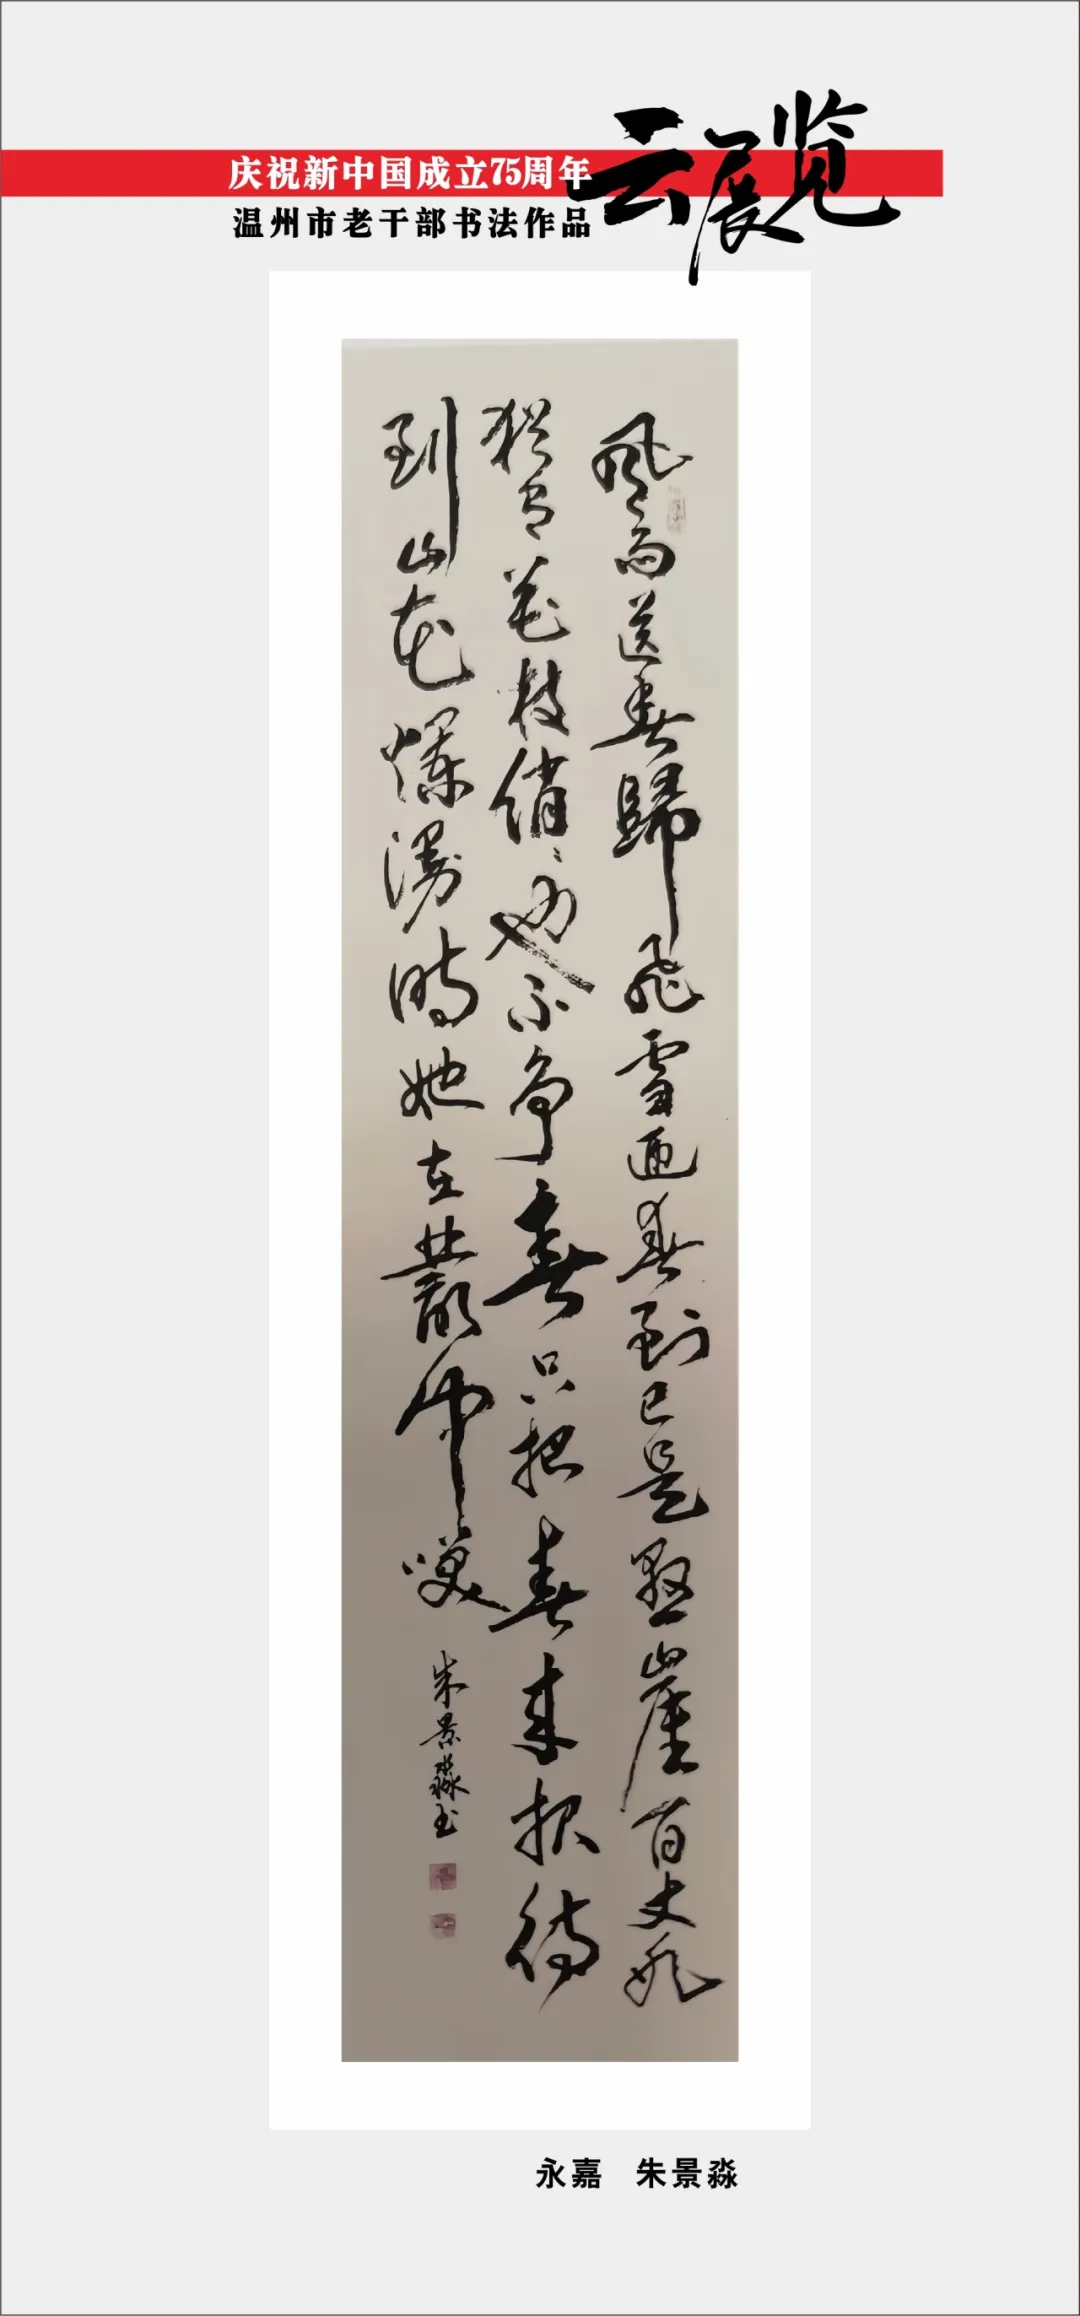 庆祝新中国成立75周年
温州市老干部书法作品
云展览
風雨送春歸飛雪迎春到已是懸崖百丈冰
犹有花枝俏俏也不争春只把春来报待
到山花爛漫时她在叢中笑
朱景淼书
永嘉 朱景淼